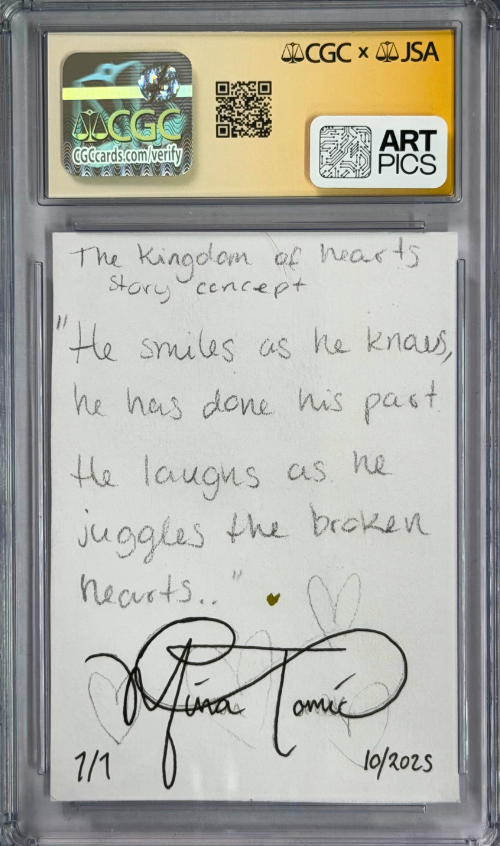 CGC x JSA
CGC
CGCcards.com/verify
ART
PICS
The Kingdom of hearts
Story concept
"He smiles as he knows,
he has done his part
He laughs as he
juggles the broken
hearts.."
Mina Tomić
1/1
10/2025